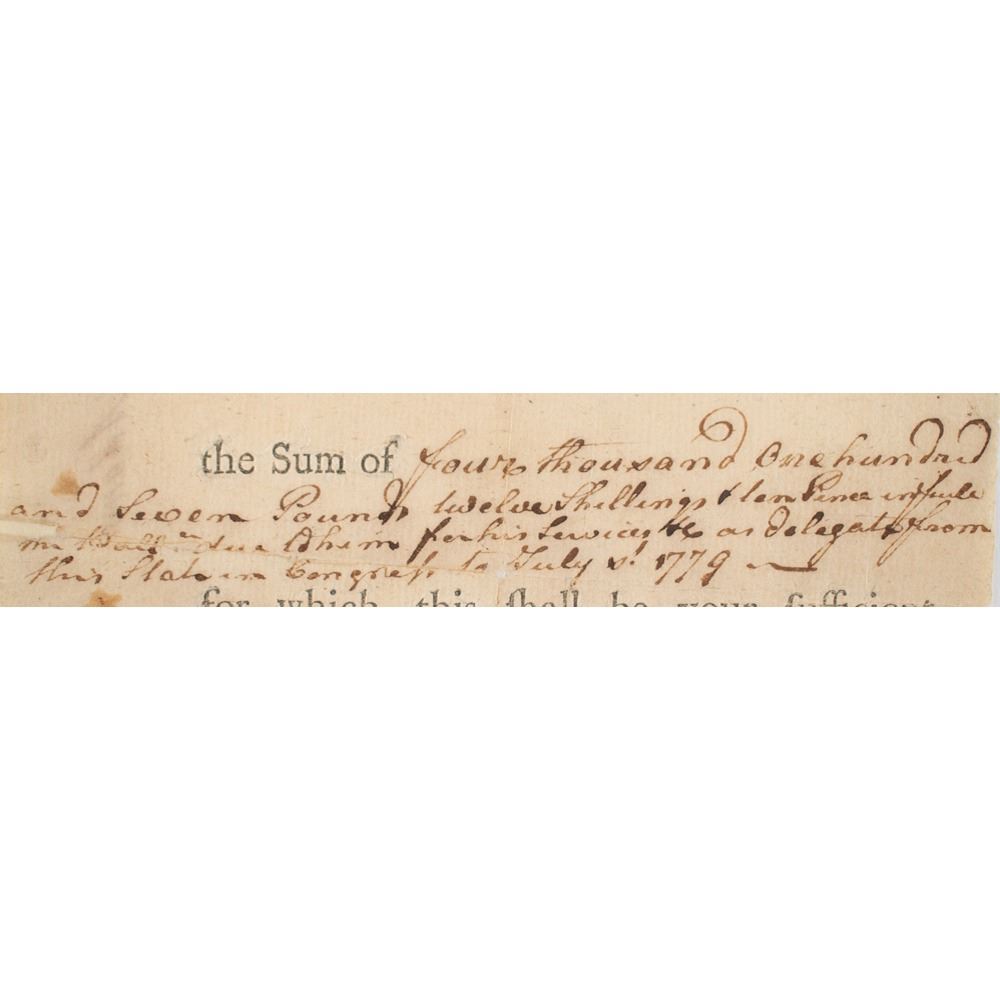 the Sum of four thousand One hundred
and Seven Pounds twelve Shillings & ten Pence in full
due to him for his Services &c as delegate from
this State in Congress to July 1779
for which this shall be your sufficient